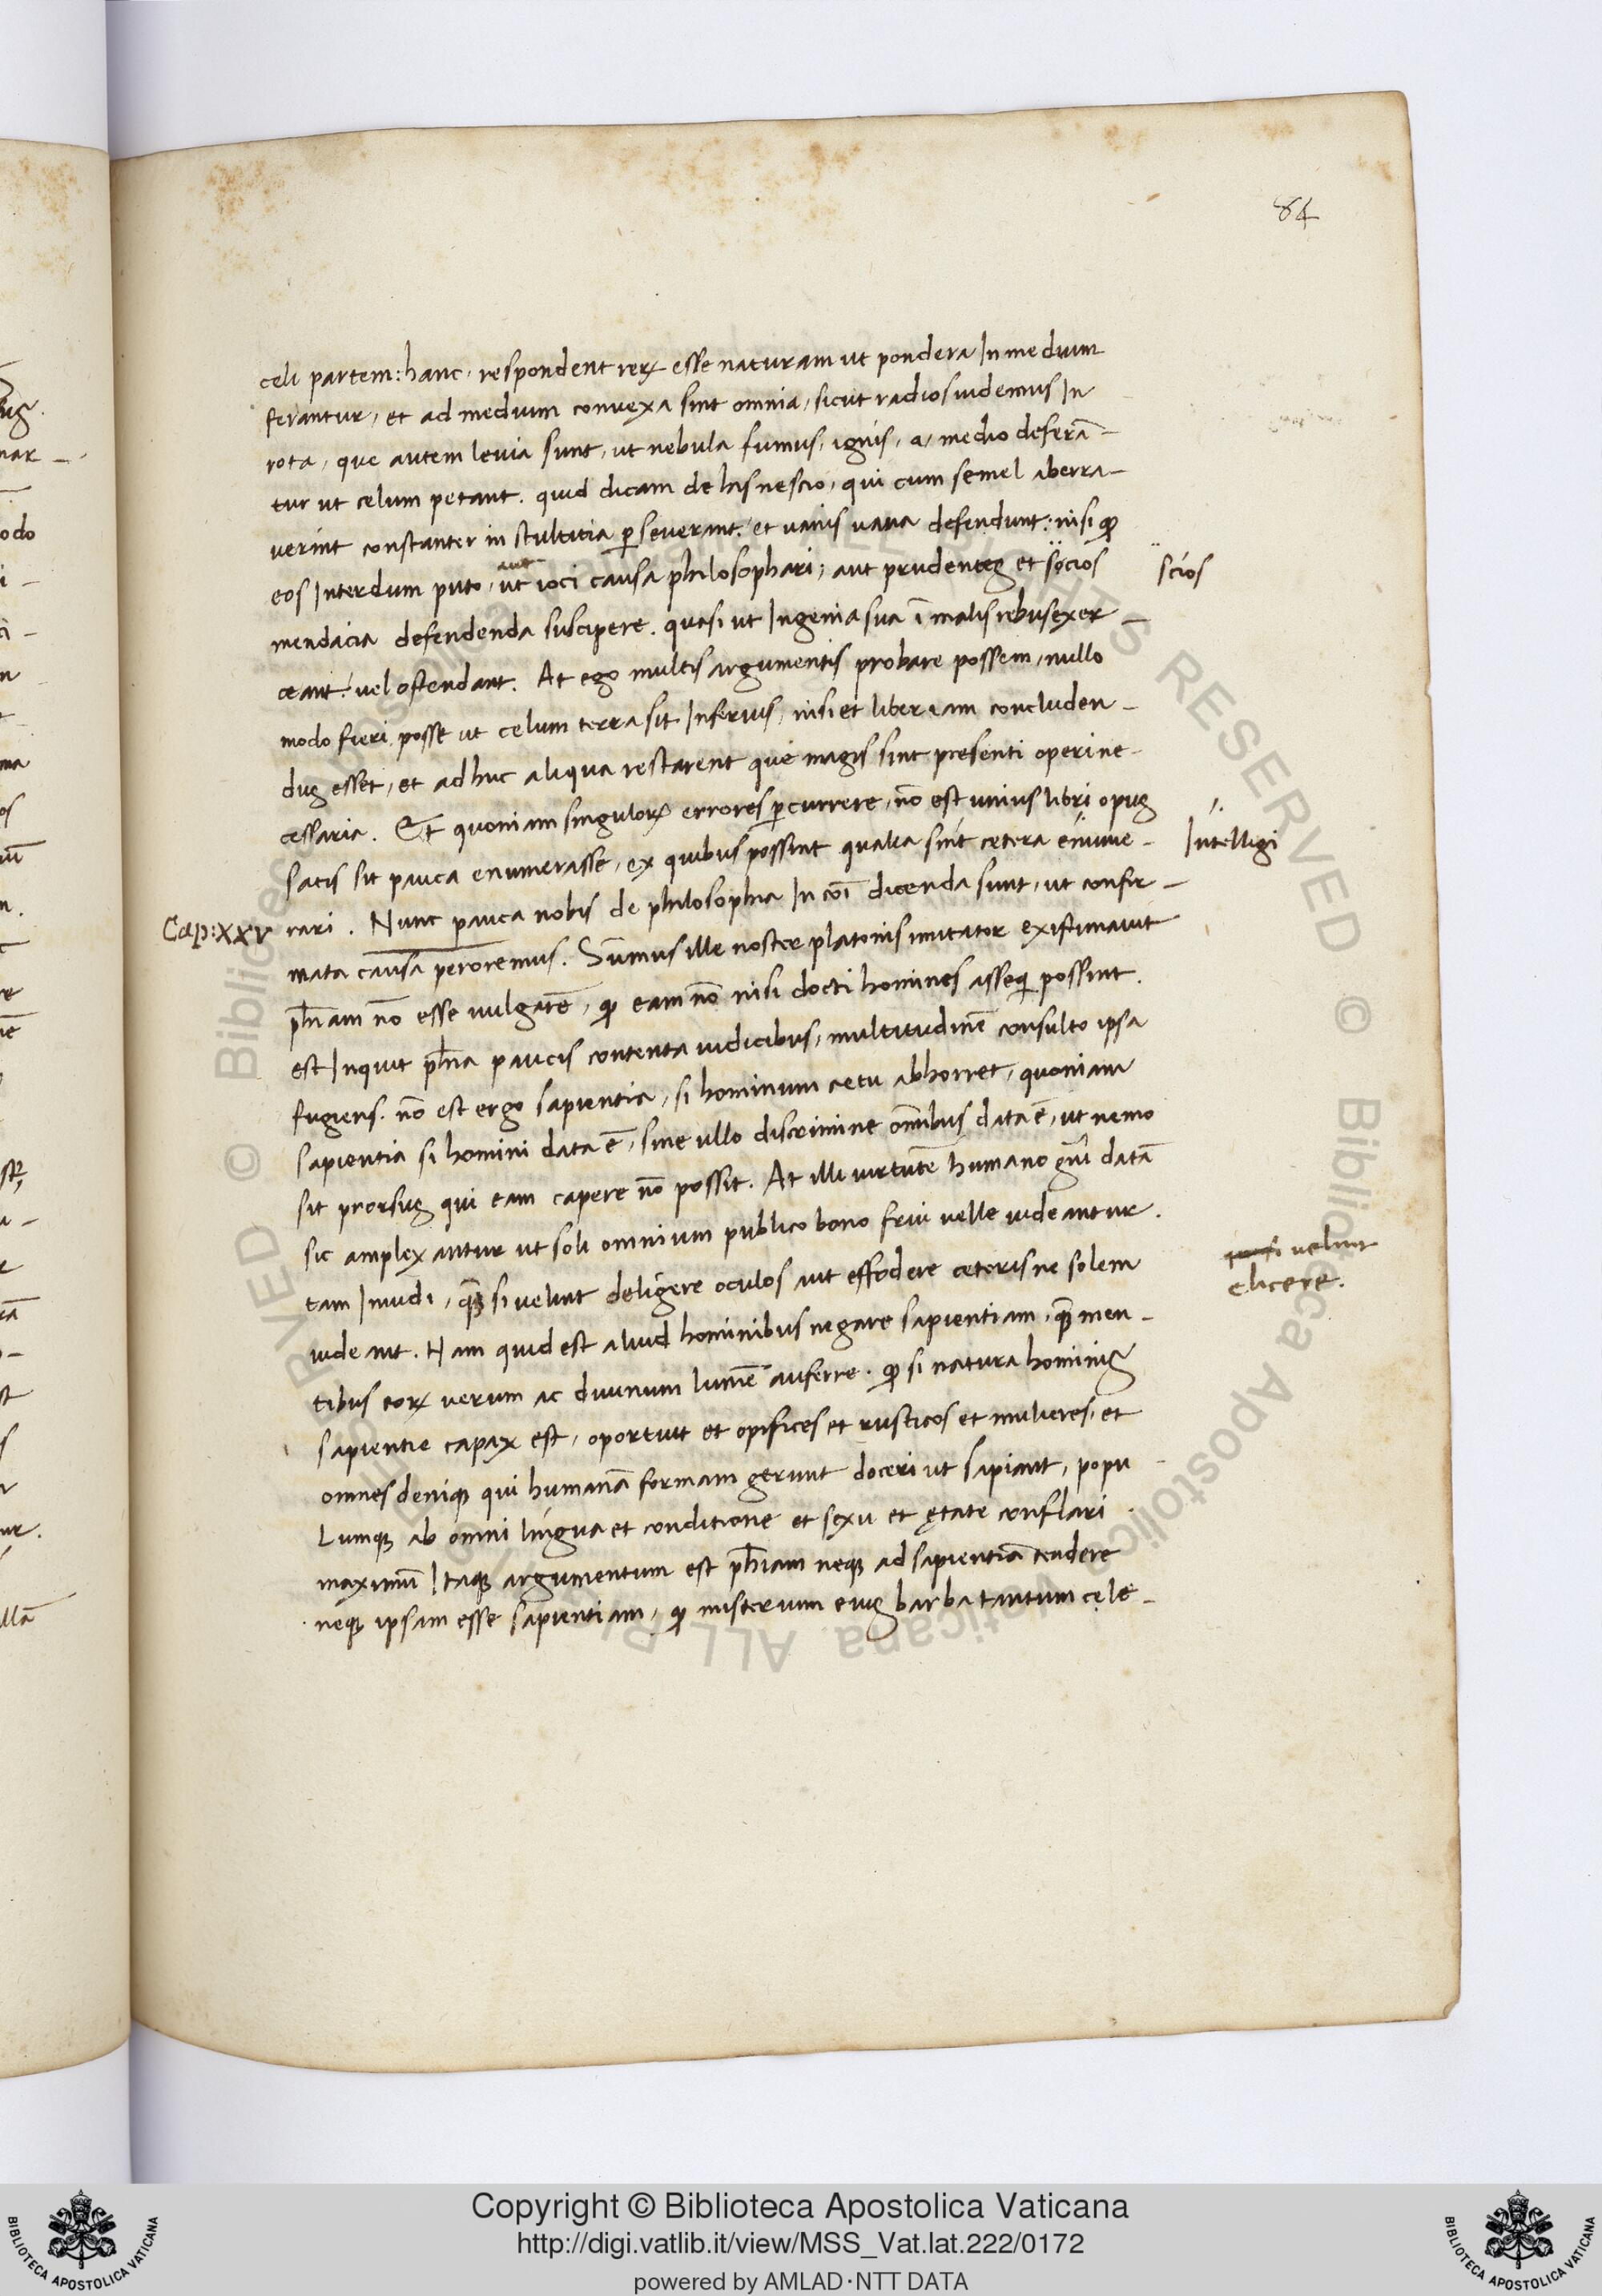 84
celi partem: hanc, respondent rerꝝ esse naturam ut pondera In medium
ferantur, et ad medium conuexa sint omnia, sicut radios uidemus In
rota, que autem leuia sunt, ut nebula fumus, ignis, a, medio deferã-
tur ut celum petant. quid dicam de his nescio, qui cum semel aberra-
uerint constanter in stultitia ꝑseuerant: et uanis uana defendunt: nisi ꝙ
aut
eos Interdum puto, ut ioci causa philosophari; aut prudentes et socios
scios
mendacia defendenda suscipere. quasi ut Ingenia sua ĩ malis rebus exer-
ceant: uel ostendant. At ego multis argumentis probare possem, nullo
modo fieri posse ut celum terra sit Inferius, nisi et liber iam concluden-
dus esset, et adhuc aliqua restarent que magis sint presenti operi ne-
cessaria. Et quoniam singulorꝝ errores ꝑcurrere, nõ est unius libri opus
satis sit pauca enumerasse, ex quibus possint qualia sint cetera enume-
Intelligi
Cap: XXV
rari. Nunc pauca nobis de philosophia In coĩ dicenda sunt, ut confir-
mata causa peroremus. Sum̃us ille noster platonis imitator existimauit
ph̃iam nõ esse uulgarẽ, ꝙ eam nõ nisi docti homines assequi possint.
est Inquit ph̃ia paucis contenta iudicibus, multitudinẽ consulto ipsa
fugiens. nõ est ergo sapientia, si hominum cetu abhorret, quoniam
sapientia si homini data ẽ, sine ullo discrimine om̃ibus data ẽ, ut nemo
sit prorsus qui eam capere nõ possit. At illi uirtutẽ humano gñi datã
sic amplexantur ut soli omnium publico bono frui uelle uideantur.
tam Inuidi, ꝙ̃ si uelint deligere oculos aut effodere ceteris ne solem
quasi uelint
elicere.
uideant. Nam quid est aliud hominibus negare sapientiam, ꝙ̃ men-
tibus eorꝝ uerum ac diuinum lumẽ auferre. ꝙ si natura hominis
sapientie capax est, oportuit et opifices et rusticos et mulieres, et
omnes deniqꝫ qui humanã formam gerunt doceri ut sapiant, popu
Lumqꝫ ab omni lingua et conditione et sexu et ętate conflari.
maximũ Itaqꝫ argumentum est ph̃iam neqꝫ ad sapientiã tendere
neqꝫ ipsam esse sapientiam, ꝙ misterium eius barba tantum cele-
Copyright © Biblioteca Apostolica Vaticana
http://digi.vatlib.it/view/MSS_Vat.lat.222/0172
powered by AMLAD·NTT DATA